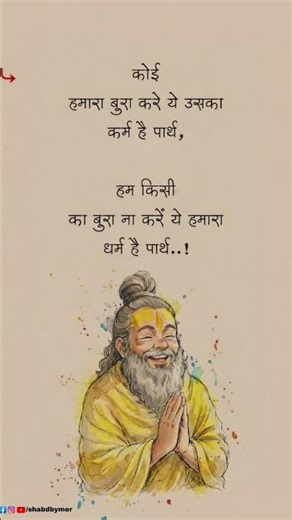 कोई
हमारा बुरा करे ये उसका
कर्म है पार्थ,
हम किसी
का बुरा ना करें ये हमारा
धर्म है पार्थ..!
/shabdbymer